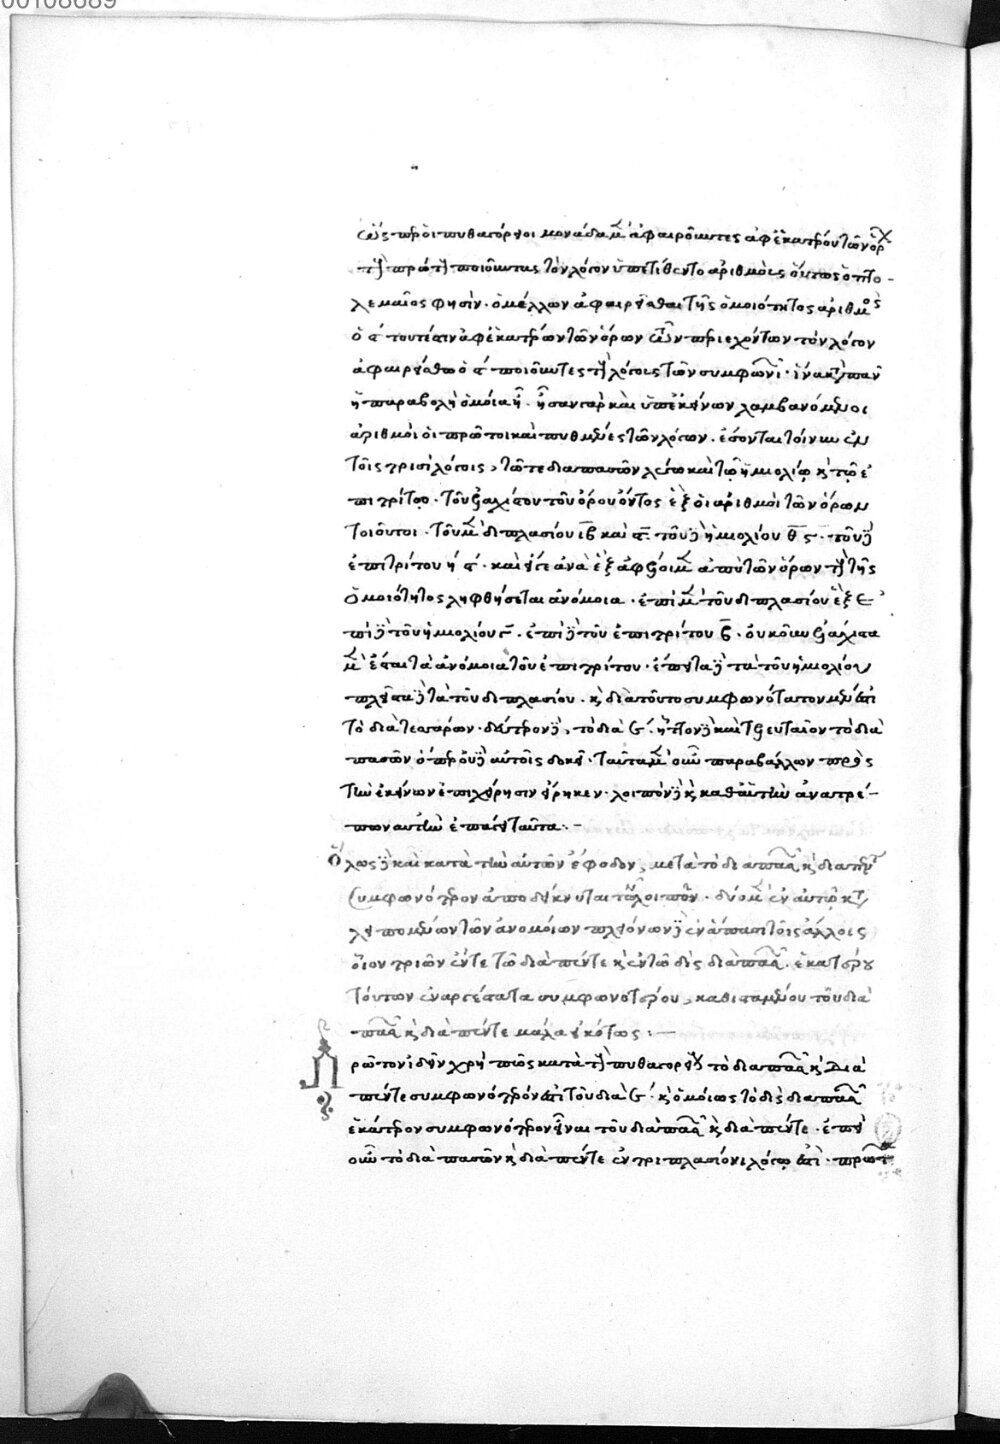 00108689
ὥσπερ οἱ πυθαγόρειοι μονάδα μὲν ἀφαιροῦντες ἀφ' ἑκατέρου τῶν ὅρων
τῇ πρώτῃ ποιοῦντας τὸν λόγον ὑπετίθεντο ἀριθμοῖς οὕτως ὁ πτο-
λεμαῖος φησὶν. ὁ μέλλων ἀφαιρεῖσθαι τῆς ὁμοιότητος ἀριθμὸς
ὁ ϛ τουτέστιν ἀφ' ἑκατέρων τῶν ὅρων τῶν περιεχόντων τὸν λόγον
ἀφαιρείσθω ὁ ϛ ποιοῦντες λόγοις τῶν συμφωνιῶν. ἵνα
ἡ παραβολὴ ὁμοία ᾖ. ἦσαν γὰρ καὶ ὑπ' ἐκείνων λαμβανόμενοι
ἀριθμοὶ οἱ πρῶτοι καὶ πυθμένες τῶν λόγων. ἔσονται τοίνυν ἐν
τοῖς τρισὶ λόγοις, τῶ τε διαπασῶν λέγω καὶ τῷ ἡμιολίῳ κ τῷ ἐ
πιτρίτῳ. τοῦ ἐλαχίστου τοῦ ὅρου ὄντος ἓξ οἱ ἀριθμοὶ τῶν ὅρων
τοιοῦτοι. τοῦ μὲν διπλασίου ιβ καὶ ϛ. τοῦ δὲ ἡμιολίου θ ϛ. τοῦ δὲ
ἐπιτρίτου η ϛ. καὶ εἴτε ἀνὰ ἓξ ἀφέλοιμεν ἀπὸ τῶν ὅρων τῆς
ὁμοιότητος ληφθήσεται ἀνόμοια. ἐπὶ μὲν τοῦ διπλασίου ἓξ ἐ
πὶ δὲ τοῦ ἡμιολίου γ. ἐπὶ δὲ τοῦ ἐπιτρίτου β. οὐκοῦν ἐλάχιστα
μὲν ἔσται τὰ ἀνόμοια τοῦ ἐπιτρίτου. ἔπειτα δὲ τὰ τοῦ ἡμιολίου
πλεῖστα δὲ τὰ τοῦ διπλασίου. κ διὰ τοῦτο συμφωνότατον μὲν ἐστι
τὸ διὰ τεσσάρων. δεύτερον δὲ, τὸ διὰ ε. ἧττον δὲ καὶ τελευταῖον τὸ διὰ
πασῶν ὅπερ οὐδὲ αὐτοῖς δοκεῖ. ταῦτα μὲν οὖν παραβάλλων πρὸς
τὴν ἐκείνων ἐπιχείρησιν εἴρηκεν. λοιπὸν δὲ κ καθ' αὑτὴν ἀνατρέ-
πων αὐτὴν ἐπάγει ταῦτα:-
Ὅλως δὲ καὶ κατὰ τὴν αὐτῶν ἔφοδον, μετὰ τὸ διαπασῶν κ διαπέντε
συμφωνότερον ἀποδείκνυται τῶν λοιπῶν. δύο μὲν ἐν αὐτῷ κατα
λειπομένων τῶν ἀνομοίων πλειόνων δὲ ἐν ἅπασι τοῖς ἄλλοις
οἷον τριῶν ἔν τε τῶ διὰ πέντε κ ἐν τῶ δὶς διαπασῶν. ἑκατέρου
τούτων ἐναργέστατα συμφωνοτέρου, καθισταμένου τοῦ διὰ
πασῶν κ διὰ πέντε μάλα εἰκότως:—
Πρῶτον ἰδεῖν χρὴ πῶς κατὰ τοὺς πυθαγορείους τὸ διαπασῶν κ διὰ
πέντε συμφωνότερόν ἐστι τοῦ διὰ ε. κ ὁμοίως τὸ δὶς διαπασῶν
ἑκάτερον συμφωνότερον εἶναι τοῦ διαπασῶν κ διὰ πέντε. ἐπεὶ
οὖν τὸ διὰ πασῶν κ διὰ πέντε ἐν τριπλασίονι λόγῳ ἐστὶ. πρῶτοι